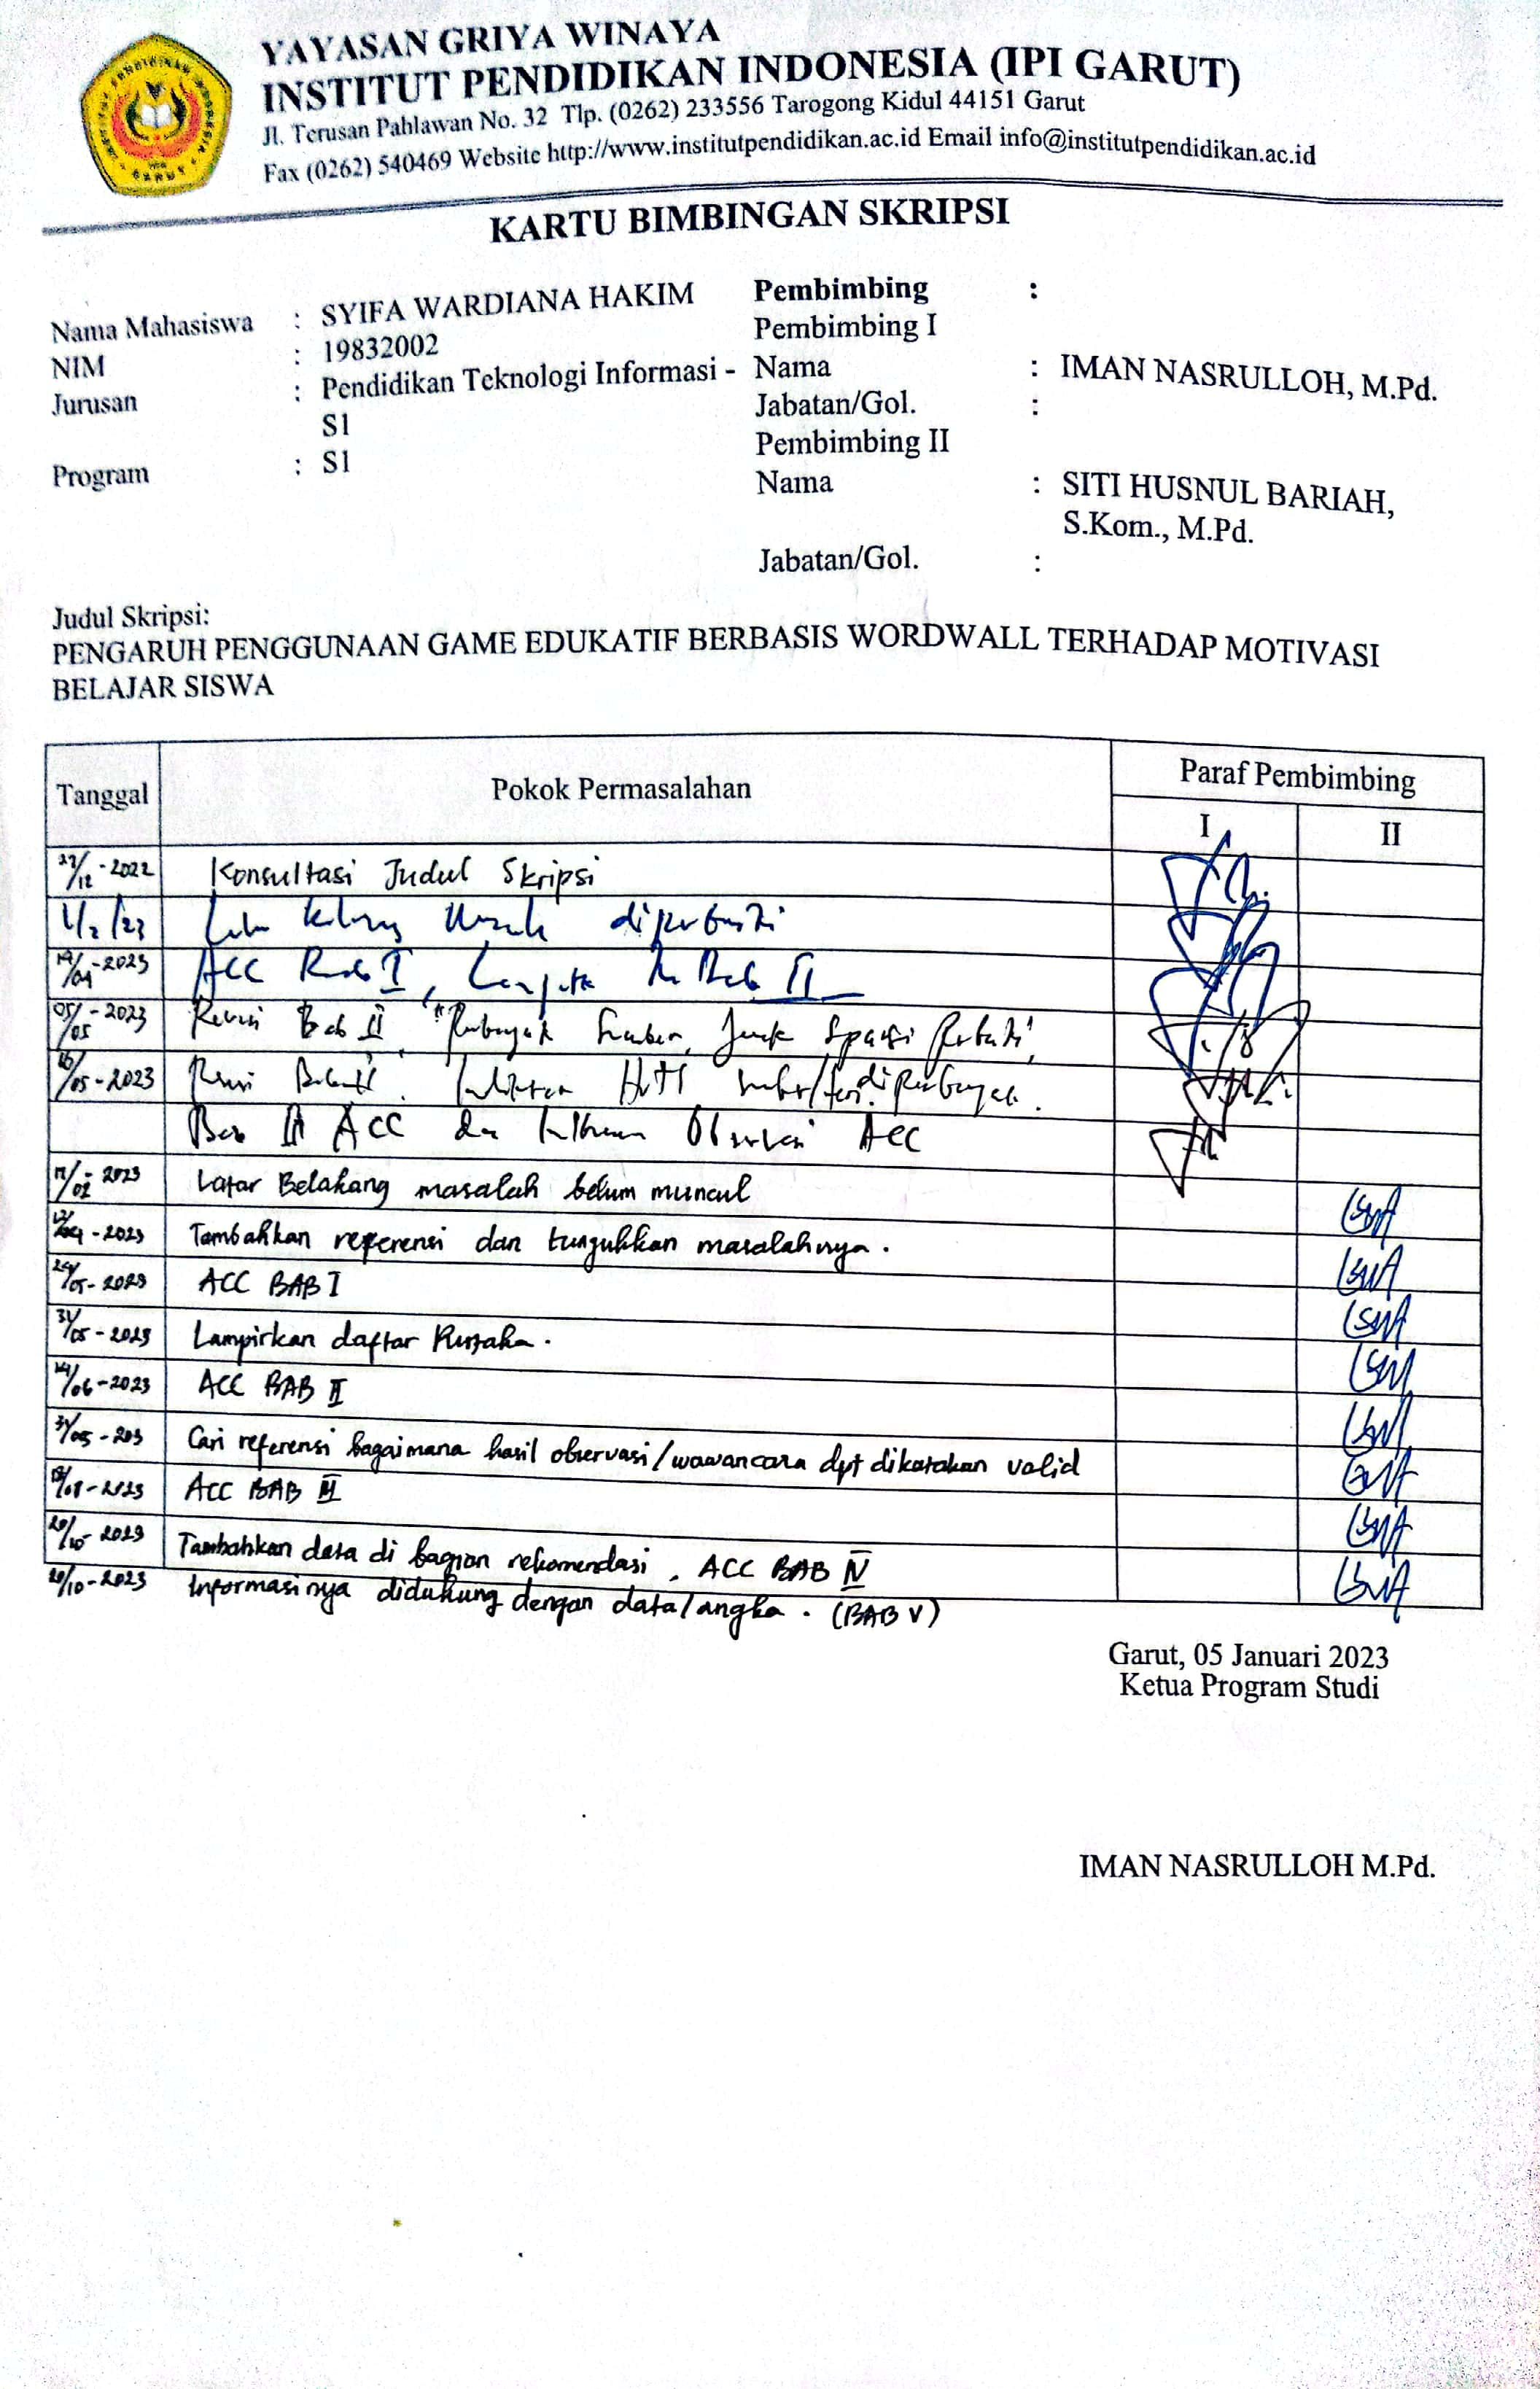 YAYASAN GRIYA WINAYA
INSTITUT PENDIDIKAN INDONESIA (IPI GARUT)
Jl. Terusan Pahlawan No. 32 Tlp. (0262) 233556 Tarogong Kidul 44151 Garut
Fax (0262) 540469 Website http://www.institutpendidikan.ac.id Email info@institutpendidikan.ac.id
KARTU BIMBINGAN SKRIPSI
Nama Mahasiswa : SYIFA WARDIANA HAKIM
NIM : 19832002
Jurusan : Pendidikan Teknologi Informasi -
S1
Program : S1
Pembimbing :
Pembimbing I
Nama : IMAN NASRULLOH, M.Pd.
Jabatan/Gol. :
Pembimbing II
Nama : SITI HUSNUL BARIAH,
S.Kom., M.Pd.
Jabatan/Gol. :
Judul Skripsi:
PENGARUH PENGGUNAAN GAME EDUKATIF BERBASIS WORDWALL TERHADAP MOTIVASI
BELAJAR SISWA
Tanggal Pokok Permasalahan Paraf Pembimbing
I II
27/12-2022 Konsultasi Judul Skripsi
diperbaiki
-2023 ACC Bab I, Lanjut ke Bab II
05/05-2023 Revisi Bab II
/05-2023 Revisi Bab II
Bab III ACC dan Observasi ACC
-2023 Latar Belakang masalah belum muncul
-2023 Tambahkan referensi dan tunjukkan masalahnya.
/05-2023 ACC BAB I
31/05-2023 Lampirkan daftar Pustaka.
/06-2023 ACC BAB II
31/05-203 Cari referensi bagaimana hasil observasi/wawancara dpt dikatakan valid
ACC BAB III
20/10-2023 Tambahkan data di bagian rekomendasi, ACC BAB IV
20/10-2023 Informasinya didukung dengan data/angka. (BAB V)
Garut, 05 Januari 2023
Ketua Program Studi
IMAN NASRULLOH M.Pd.